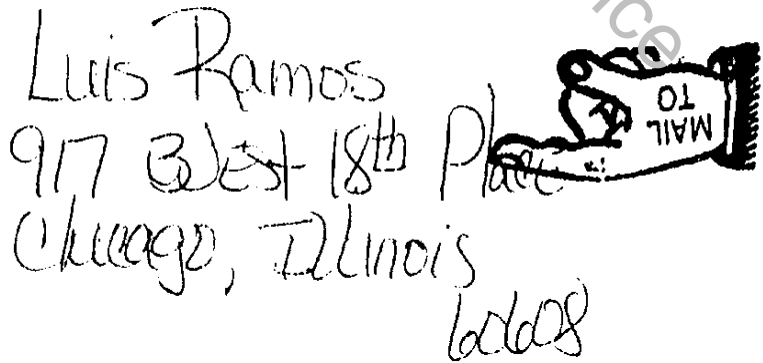 Luis Ramos
917 West 18th Place
Chicago, Illinois
60608
MAIL
TO